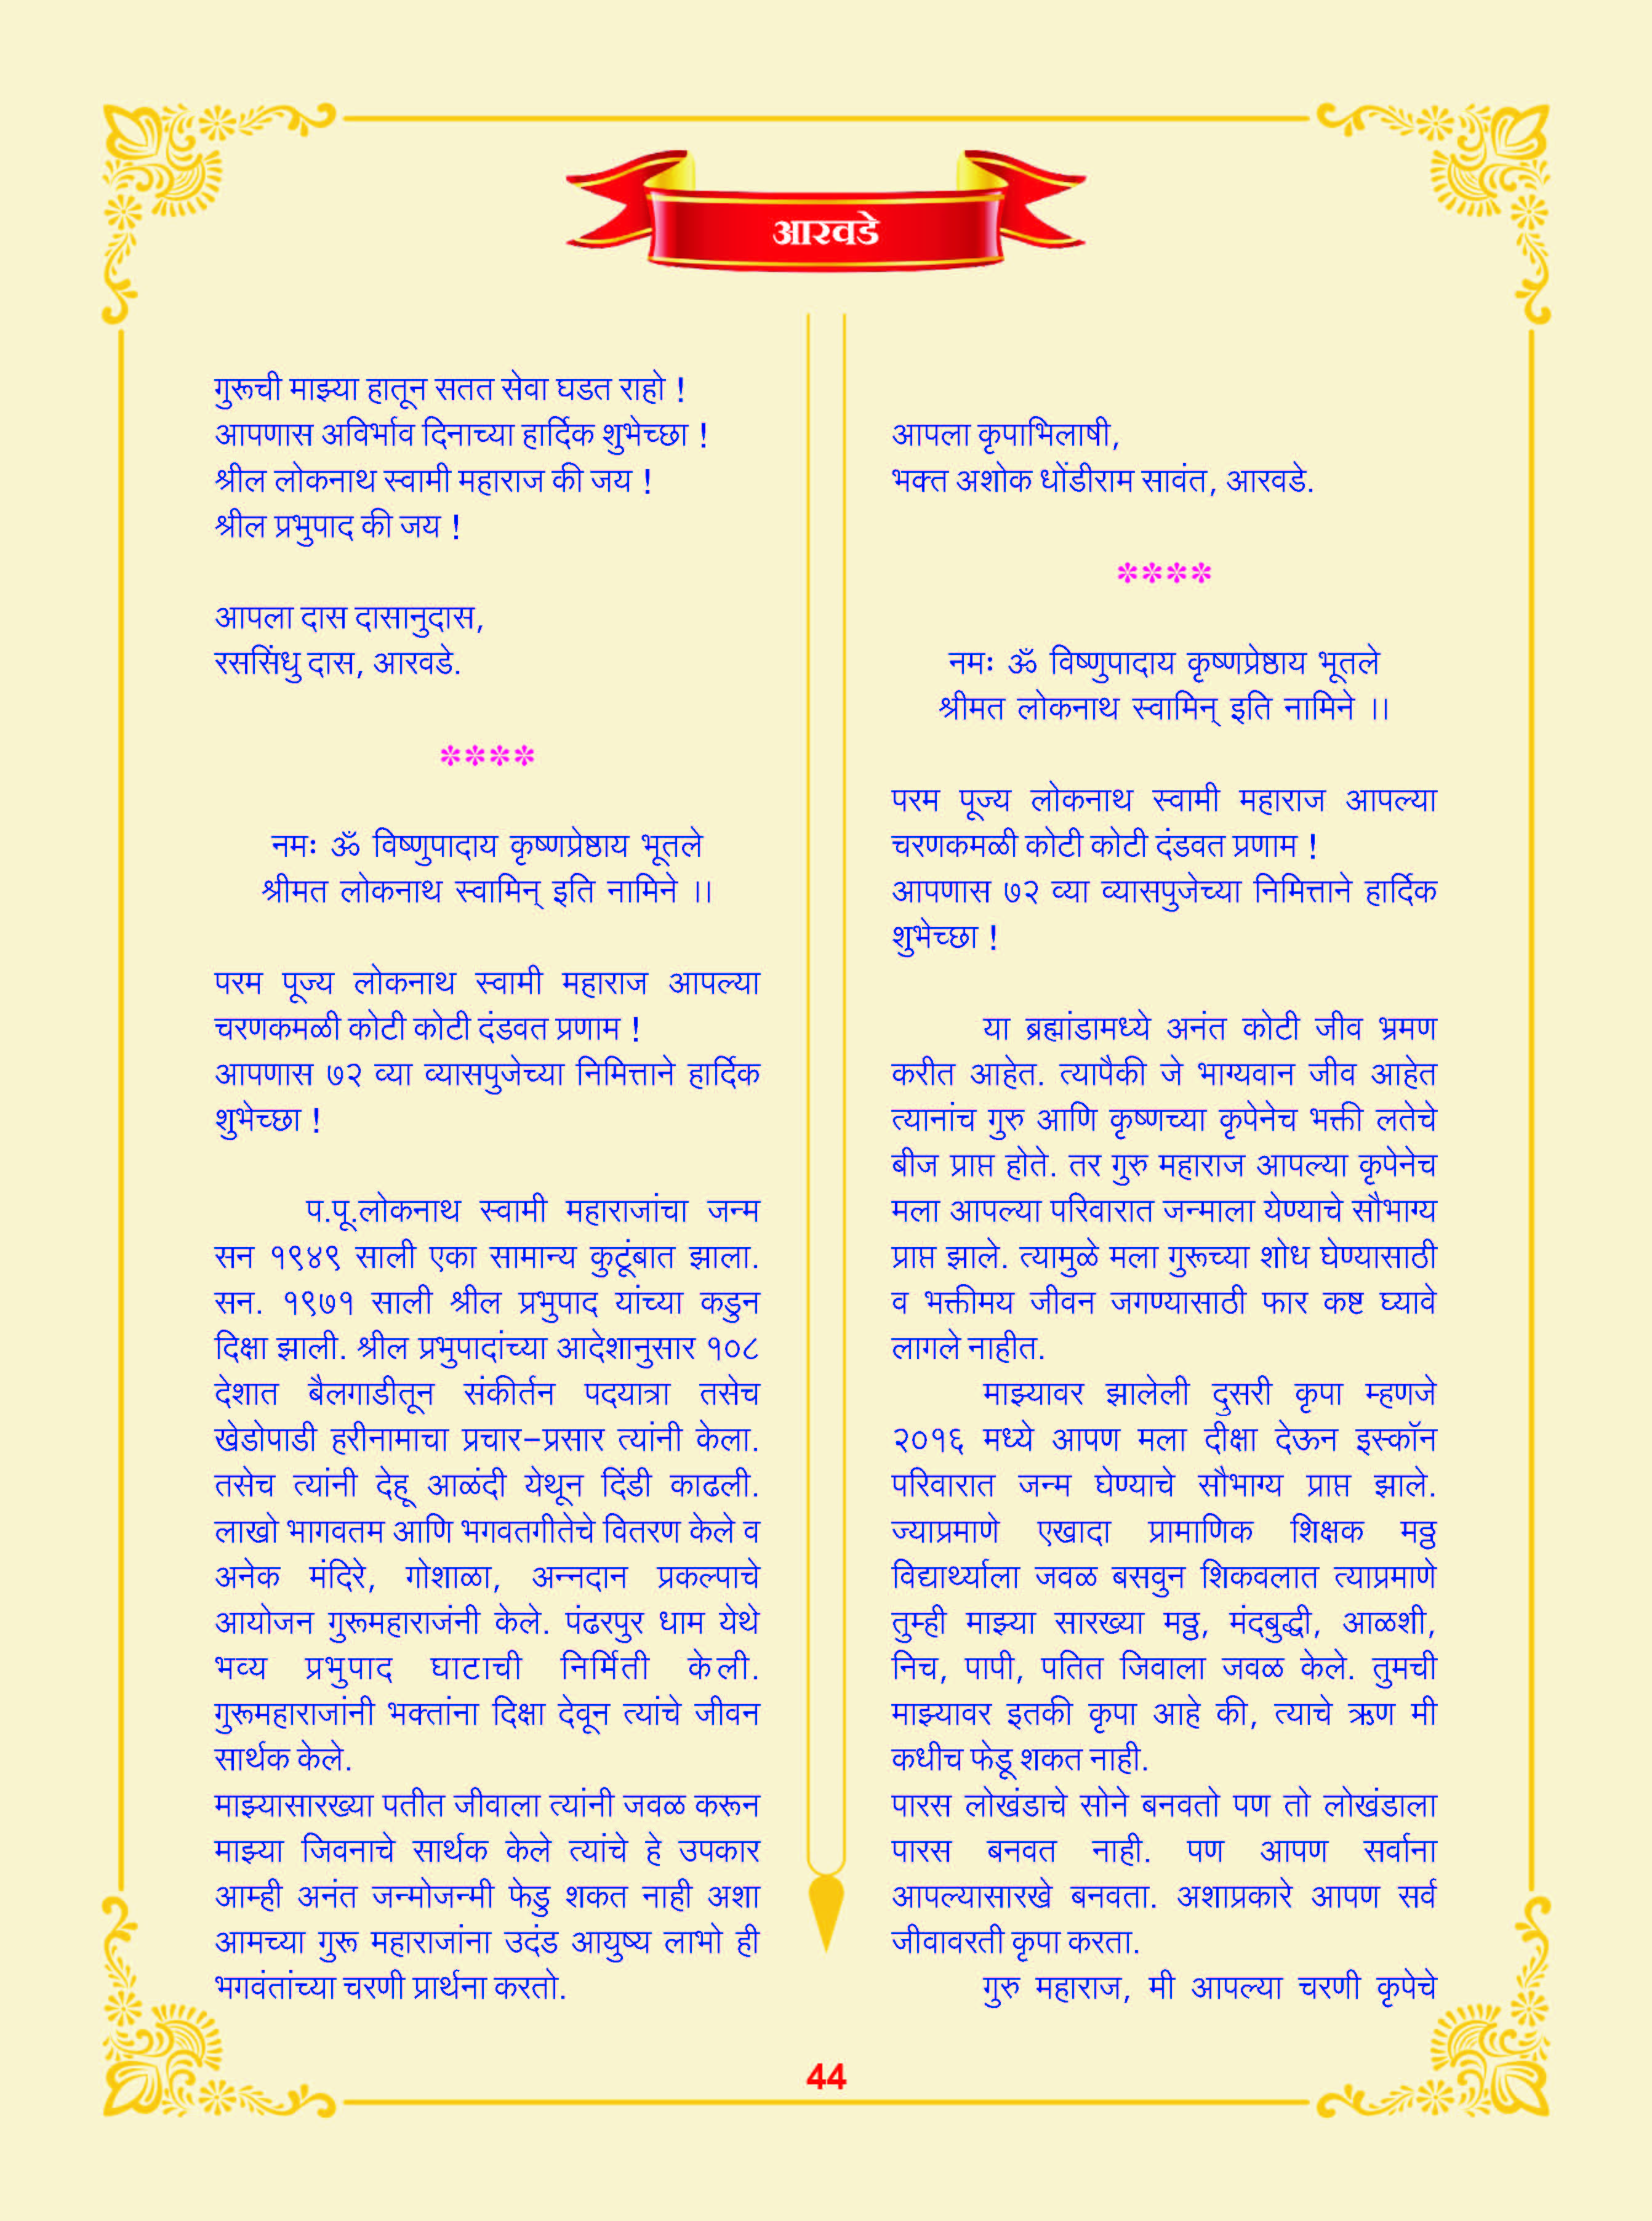 आरवडे
गुरूची माझ्या हातून सतत सेवा घडत राहो !
आपणास अविर्भाव दिनाच्या हार्दिक शुभेच्छा !
श्रील लोकनाथ स्वामी महाराज की जय !
श्रील प्रभुपाद की जय !
आपला दास दासानुदास,
रससिंधु दास, आरवडे.
****
नमः ॐ विष्णुपादाय कृष्णप्रेष्ठाय भूतले
श्रीमत लोकनाथ स्वामिन् इति नामिने ।।
परम पूज्य लोकनाथ स्वामी महाराज आपल्या
चरणकमळी कोटी कोटी दंडवत प्रणाम !
आपणास ७२ व्या व्यासपुजेच्या निमित्ताने हार्दिक
शुभेच्छा !
प.पू.लोकनाथ स्वामी महाराजांचा जन्म
सन १९४९ साली एका सामान्य कुटूंबात झाला.
सन. १९७१ साली श्रील प्रभुपाद यांच्या कडुन
दिक्षा झाली. श्रील प्रभुपादांच्या आदेशानुसार १०८
देशात बैलगाडीतून संकीर्तन पदयात्रा तसेच
खेडोपाडी हरीनामाचा प्रचार-प्रसार त्यांनी केला.
तसेच त्यांनी देहू आळंदी येथून दिंडी काढली.
लाखो भागवतम आणि भगवतगीतेचे वितरण केले व
अनेक मंदिरे, गोशाळा, अन्नदान प्रकल्पाचे
आयोजन गुरूमहाराजंनी केले. पंढरपुर धाम येथे
भव्य प्रभुपाद घाटाची निर्मिती केली.
गुरूमहाराजांनी भक्तांना दिक्षा देवून त्यांचे जीवन
सार्थक केले.
माझ्यासारख्या पतीत जीवाला त्यांनी जवळ करून
माझ्या जिवनाचे सार्थक केले त्यांचे हे उपकार
आम्ही अनंत जन्मोजन्मी फेडु शकत नाही अशा
आमच्या गुरू महाराजांना उदंड आयुष्य लाभो ही
भगवंतांच्या चरणी प्रार्थना करतो.
आपला कृपाभिलाषी,
भक्त अशोक धोंडीराम सावंत, आरवडे.
****
नमः ॐ विष्णुपादाय कृष्णप्रेष्ठाय भूतले
श्रीमत लोकनाथ स्वामिन् इति नामिने ।।
परम पूज्य लोकनाथ स्वामी महाराज आपल्या
चरणकमळी कोटी कोटी दंडवत प्रणाम !
आपणास ७२ व्या व्यासपुजेच्या निमित्ताने हार्दिक
शुभेच्छा !
या ब्रह्मांडामध्ये अनंत कोटी जीव भ्रमण
करीत आहेत. त्यापैकी जे भाग्यवान जीव आहेत
त्यानांच गुरु आणि कृष्णच्या कृपेनेच भक्ती लतेचे
बीज प्राप्त होते. तर गुरु महाराज आपल्या कृपेनेच
मला आपल्या परिवारात जन्माला येण्याचे सौभाग्य
प्राप्त झाले. त्यामुळे मला गुरूच्या शोध घेण्यासाठी
व भक्तीमय जीवन जगण्यासाठी फार कष्ट घ्यावे
लागले नाहीत.
माझ्यावर झालेली दुसरी कृपा म्हणजे
२०१६ मध्ये आपण मला दीक्षा देऊन इस्कॉन
परिवारात जन्म घेण्याचे सौभाग्य प्राप्त झाले.
ज्याप्रमाणे एखादा प्रामाणिक शिक्षक मठ्ठ
विद्यार्थ्याला जवळ बसवुन शिकवलात त्याप्रमाणे
तुम्ही माझ्या सारख्या मठ्ठ, मंदबुद्धी, आळशी,
निच, पापी, पतित जिवाला जवळ केले. तुमची
माझ्यावर इतकी कृपा आहे की, त्याचे ऋण मी
कधीच फेडू शकत नाही.
पारस लोखंडाचे सोने बनवतो पण तो लोखंडाला
पारस बनवत नाही. पण आपण सर्वाना
आपल्यासारखे बनवता. अशाप्रकारे आपण सर्व
जीवावरती कृपा करता.
गुरु महाराज, मी आपल्या चरणी कृपेचे
44